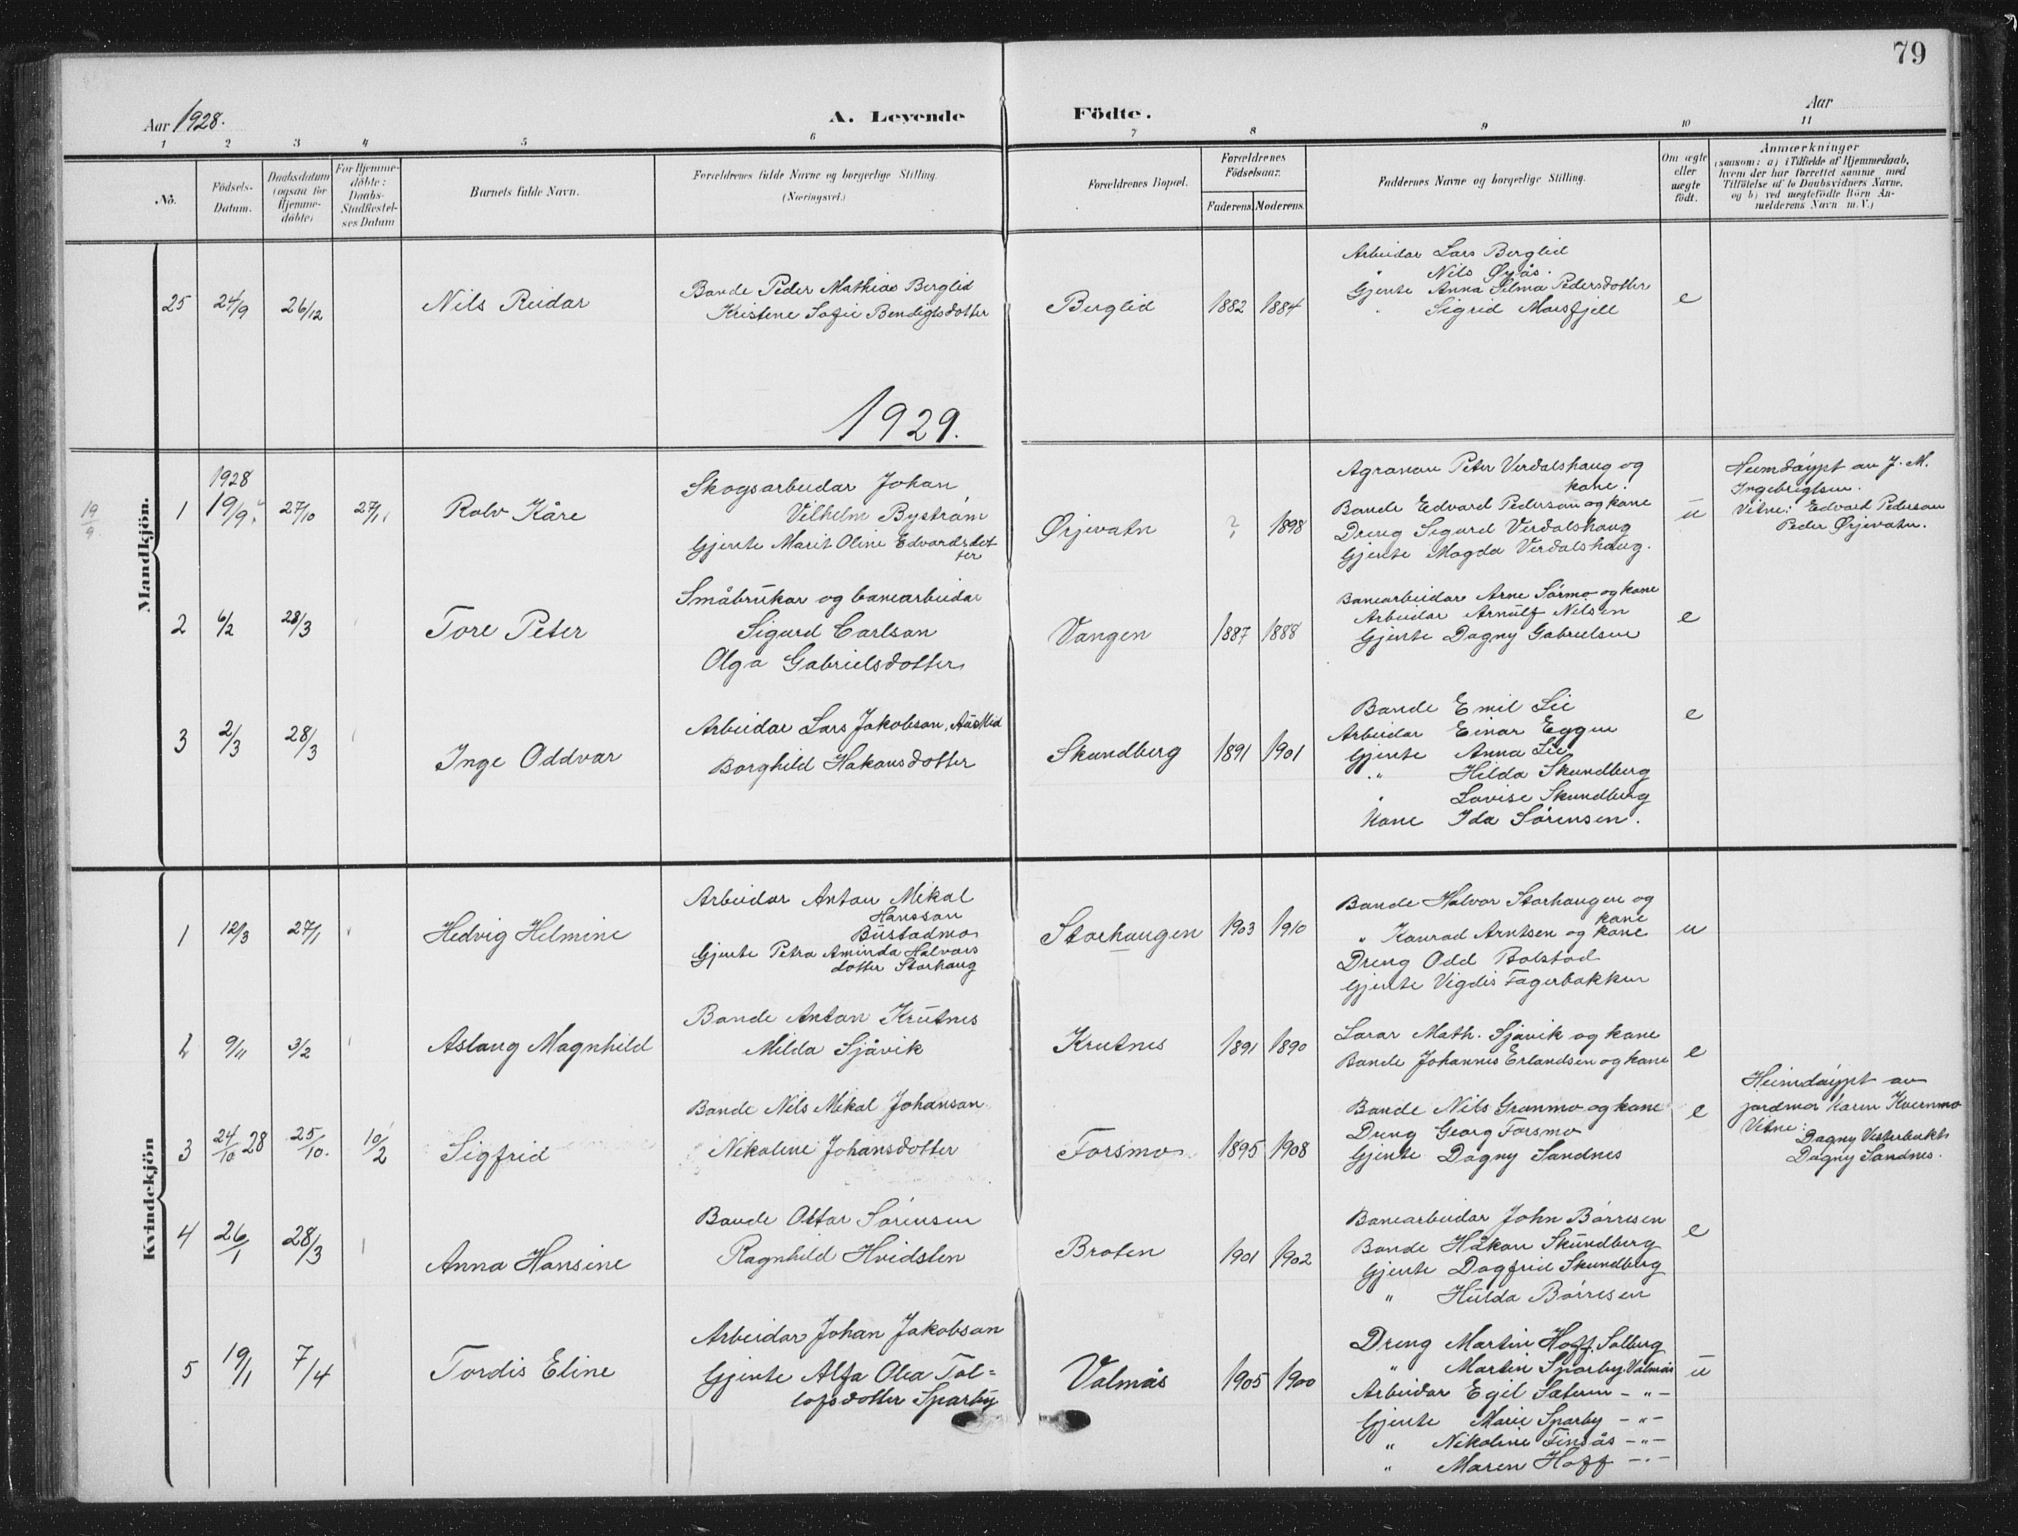 79
Aar 1928.
A. Levende Födte.
Aar
1 2 3 4 5 6 7 8 9 10 11
No.
Födsels-Datum.
Daabsdatum (ogsaa for Hjemme-döbte)
For Hjemme-döbte: Daabs-Stadfestel-ses Datum
Barnets fulde Navn.
Forældrenes fulde Navne og borgerlige Stilling. (Næringsvei.)
Forældrenes Bopæl.
Forældrenes Födselsaar.
Faderens. Moderens.
Faddernes Navne og borgerlige Stilling.
Om ægte eller uægte födt.
Anmærkninger
(saasom: a) i Tilfælde af Hjemmedaab,
hvem der har forrettet samme med
Tilföielse af to Daabsvidners Navne,
og b) ved uægtefödte Börn An-
melderens Navn m. V.)
Mandkjön.
25 24/9 26/12 Nils Reidar
Bonde Peder Mathias Berglid
Kristene Sofie Bendigtsdotter
Berglid 1882 1884
Arbeidar Lars Berglid
" Nils Øyås.
Gjente Anna Selma Pedersdotter
" Sigrid Marsfjell
e
1929.
19/9.
1 1928 19/9. 27/10 27/1 Rolv Kåre
Skogsarbeidar Johan
Vilhelm Bystrøm
Gjente Marit Oline Edvardsdot
ter
Ørjevatn ? 1898
Agronom Peter Verdalshaug og
kone.
Bonde Edvard Pederson og kone
Dreng Sigurd Verdalshaug
Gjente Magda Verdalshaug.
u
Heimdøypt av J. M.
Ingebrigtsen.
Vitne: Edvard Pederson
Peder Ørjevatn.
2 6/2 28/3 Tore Peter
Småbrukar og banearbeidar
Sigurd Carlson
Olga Gabrielsdotter
Vangen 1887 1888
Banearbeidar Arne Sørmo og kone
Arbeidar Arnulf Nilsen
Gjente Dagny Gabrielsen
e
3 2/3 28/3 Inge Oddvar
Arbeidar Lars Jakobson,
Borghild Håkonsdotter
Skundberg 1891 1901
Bonde Emil Lie
Arbeidar Einar Eggen
Gjente Anna Lie
" Hilda Skundberg
" Lovise Skundberg
Kone Ida Sørensen.
e
Kvindekjön
1 12/3 27/1 Hedvig Helmine
Arbeidar Anton Mikal
Hansson
Bustadmo
Gjente Petra Aminda Halvors
dotter Storhaug
Storhaugen 1903 1910
Bonde Halvor Storhaugen og
kone
" Konrad Arntsen og kone
Dreng Odd Bolstad
Gjente Vigdis Fagerbakken
u
2 9/11 3/2 Aslaug Magnhild
Bonde Anton Krutnes
Milda Sjåvik
Krutnes 1891 1890
Lærar Math. Sjåvik og kone
Bonde Johannes Erlandsen og kone
e
3 24/10 28 25/10. 10/2 Sigfrid
Bonde Nils Mikal Johanson
Nikoline Johansdotter
Forsmo 1895 1908
Bonde Nils Granmo og kone
Dreng Georg Forsmo
Gjente Dagny Sandnes
e
Heimdøypt av
jordmor Karen Kvernmo
Vitne:
Dagny Vesterbukt
Dagny Sandnes.
4 26/1 28/3 Anna Hansine
Bonde Ottar Sørensen
Ragnhild Hvidsten
Broten 1901 1902
Banearbeidar John Børresen
Bonde Håkon Skundberg
Gjente Dagfrid Skundberg
" Hulda Børresen
e
5 19/1 7/4 Tordis Eline
Arbeidar Johan Jakobson
Gjente Alfa Olea Tol=
lofsdotter Sparby
Valmås 1905 1900
Dreng Martin Hoff, Solberg
" Martin Sparby Valmås
Arbeidar Egil Sæteren - " -
Gjente Marie Sparby - " -
" Nikoline Finsås - " -
" Maren Hoff - " -
u